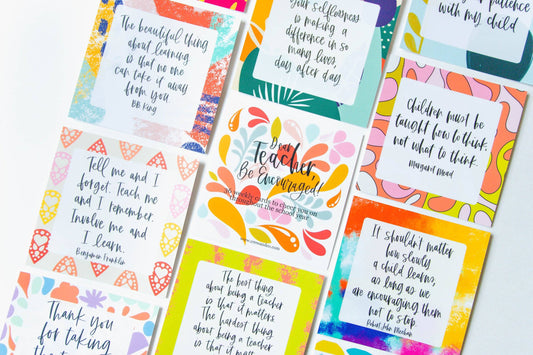 The beautiful thing
about learning
is that no one
can take it away
from you.
BB King
Your selflessness
is making a
difference in so
many lives,
day after day.
patience
with my child
Tell me and I
forget. Teach me
and I remember.
Involve me and
I learn.
Benjamin Franklin
Dear
Teacher,
Be Encouraged!
36 weekly cards to cheer you on
throughout the school year.
Children must be
taught how to think,
not what to think.
Margaret Mead
Thank you
for taking
The best thing
about being a teacher
is that it matters.
The hardest thing
about being a teacher
is that it matters
It shouldn't matter
how slowly
a child learns,
as long as we
are encouraging them
not to stop.
Robert John Meehan